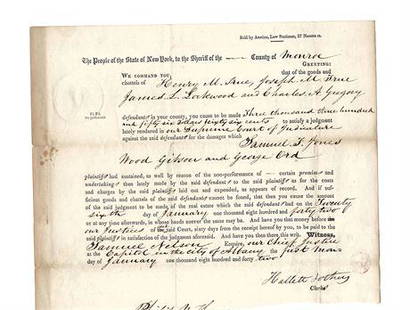 Sold by Anstice, Law Stationer, 27 Nassau st.
The People of the State of New York, to the Sheriff of the County of Monroe
GREETING:
WE COMMAND YOU that of the goods and
chattels of Henry M. True, Joseph M. True
James L. Lockwood and Charles A. Gregory
defendants in your county, you cause to be made Three thousand three hundred
and fifty six dollars sixty six cents to satisfy a judgment
lately rendered in our Supreme Court of Judicature
against the said defendants for the damages which Samuel T. Jones
Wood Gibson and George Ord
plaintiffs had sustained, as well by reason of the non-performance of certain promises and
undertakings then lately made by the said defendants to the said plaintiffs as for the costs
and charges by the said plaintiffs laid out and expended, as appears of record. And if sufficient
goods and chattels of the said defendants cannot be found, that then you cause the amount
of the said judgment to be made, of the real estate which the said defendants had on the Twenty
sixth day of January one thousand eight hundred and forty two
or at any time afterwards, in whose hands soever the same may be. And have you that money before
our Justices of the said Court, sixty days from the receipt hereof by you, to be paid to the said
plaintiffs in satisfaction of the judgment aforesaid. And have you then there this writ. Witness,
Samuel Nelson Esquire, our Chief Justice
at the Capitol in the city of Albany the first Mon-
day of January one thousand eight hundred and forty two
Hallett & others
Clerks